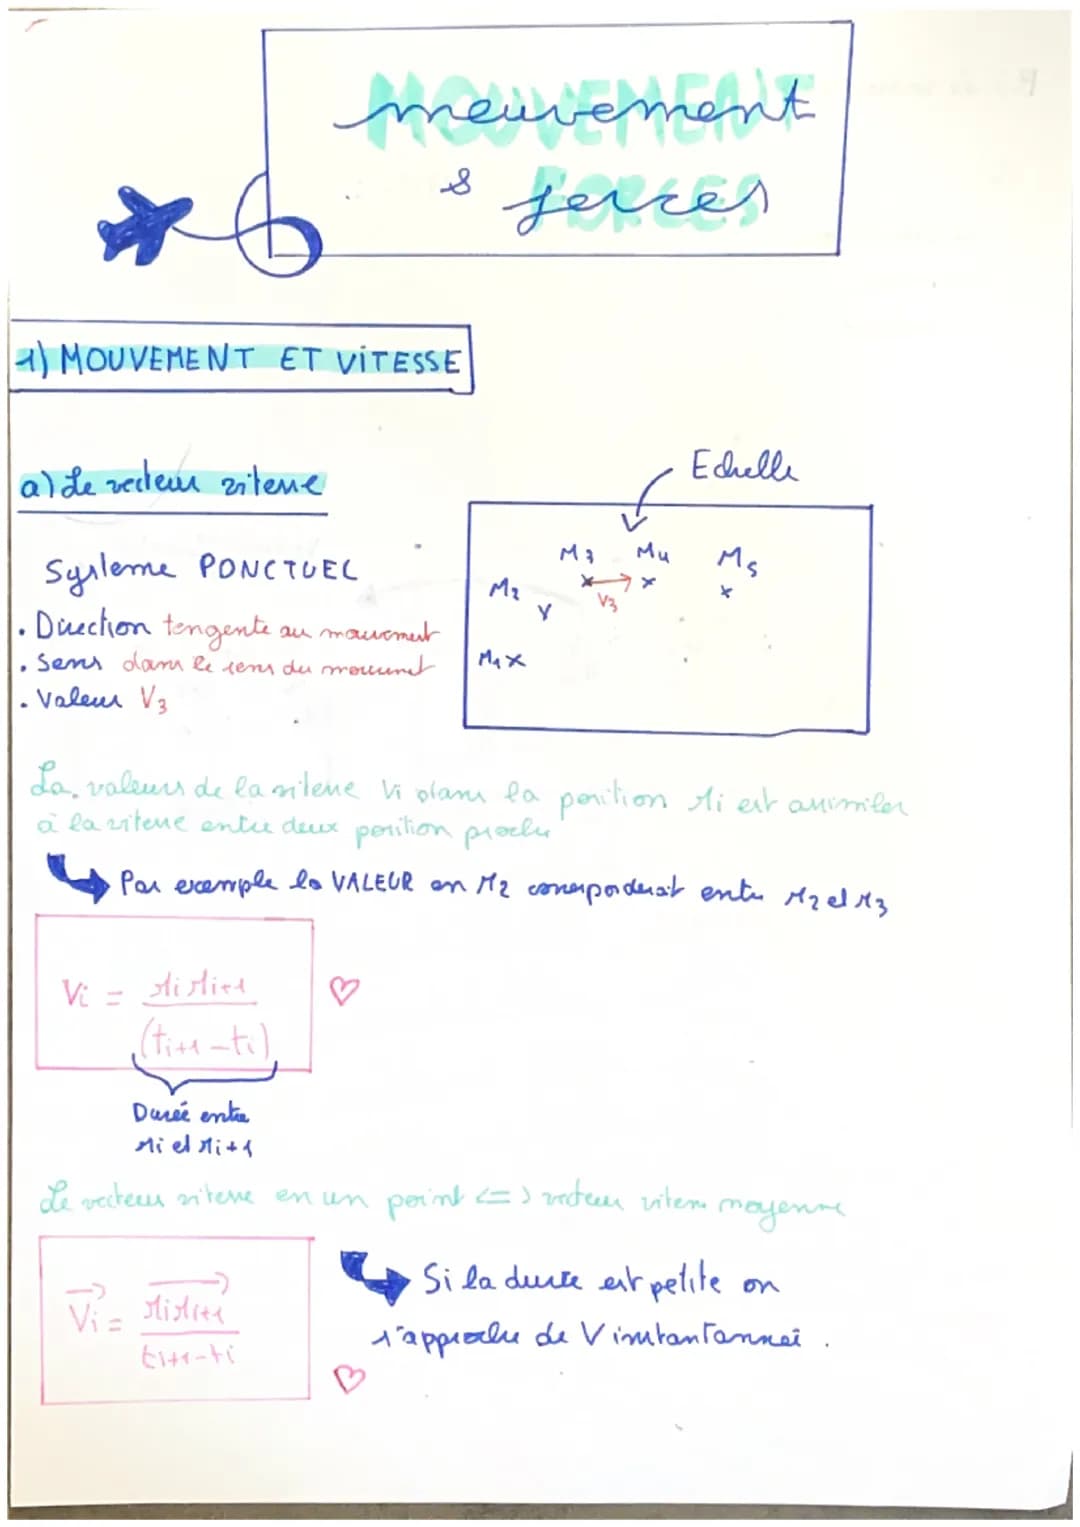 MOUVEMENT
mouvement
FORCES
& forces
1) MOUVEMENT ET VITESSE
a) Le vecteur vitesse
Echelle
Systeme PONCTUEL
. Direction tengente au mouvement
. Sens dans le sens du mouvment
. Valeur V3
M3 M4 M5
M2
V3
M1
La valeurs de la vitesse Vi dans la position Mi est assimiler
à la vitesse entre deux position proche
Par exemple la VALEUR en M2 correspenderait entre M2 et M3
Vi = MiMi+1
(ti+1-ti)
Dureé entre
Mi et Mi+1
Le vecteur vitesse en un point <=> vecteur vitesse moyenne
Vi = MiMi+1
ti+1-ti
Si la durée est petite on
s'approche de V instantanneé .